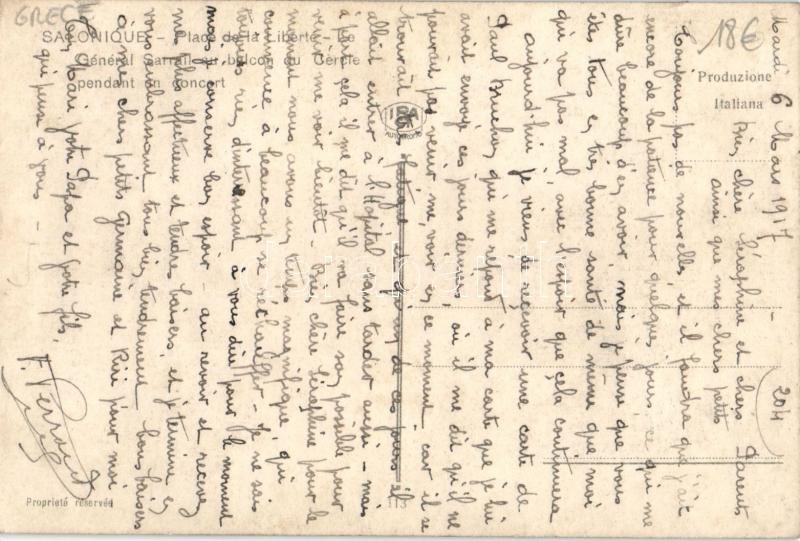 GRECE
18€
SALONIQUE - Place de la Liberté - Le
Général Sarrail au balcon du Cercle
pendant un concert
Produzione
Italiana
IPA
AUTOCROMO
Mardi 6 Mars 1917
204
Bien chère Séraphine et chers Parents
ainsi que mes chers petits
Toujours pas de nouvelles et il faudra que j'aie
encore de la patience pour quelques jours, ce qui me
dure beaucoup d'en avoir, mais je pense que vous
êtes tous en très bonne santé de même que moi
qui va pas mal, avec l'espoir que cela continuera
aujourd'hui je viens de recevoir une carte de
Paul qui me répond à ma carte que je lui
avait envoyé ces jours derniers, où il me dit qu'il ne
pourrait pas venir me voir en ce moment car il se
trouvait de ces jours il
allait entrer à l'Hôpital sans tarder aussi - mais
à part cela il me dit qu'il va faire son possible pour
venir me voir bientôt - Bien chère Séraphine pour le
moment nous avons un temps magnifique qui
commence à beaucoup se réchauffer - Je ne sais
toujours rien d'intéressant à vous dire pour le moment
mais conserve bon espoir - au revoir et recevez
mes plus affectueux et tendres baisers, et je termine en
vous embrassant tous bien tendrement bons baisers
à mes chers petits Germaine et Riri pour moi
Ton Mari votre Papa et votre fils,
qui pense à vous -
Proprieté réservée
113